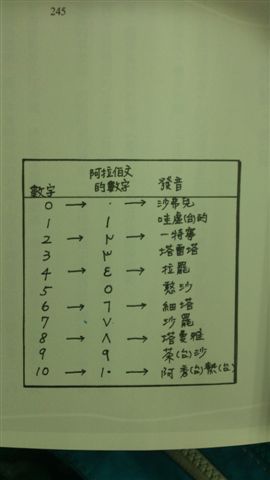 245
數字 阿拉伯文的數字 發音
0 → ٠ → 沙弗兒
1 ١ 哇虛(台)的
2 → ٢ → 一特寧
3 ٣ 塔雷塔
4 → ٤ → 拉罷
5 ٥ 憨沙
6 → ٦ → 細塔
7 ٧ 沙罷
8 → ٨ → 塔曼雅
9 ٩ 茶(台)沙
10 → ١٠ → 阿秀(台)熱(台)